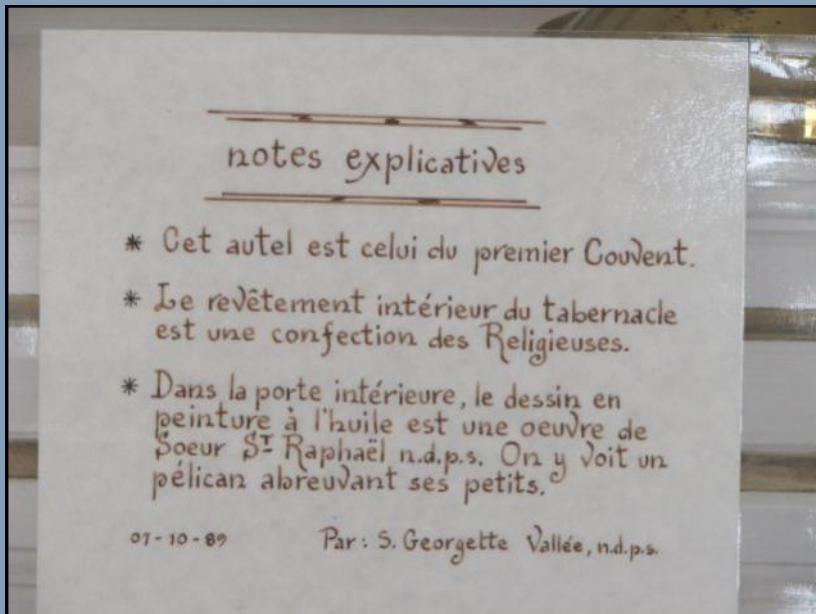 notes explicatives
* Cet autel est celui du premier Couvent.
* Le revêtement intérieur du tabernacle
est une confection des Religieuses.
* Dans la porte intérieure, le dessin en
peinture à l'huile est une oeuvre de
Soeur St Raphaël n.d.p.s. On y voit un
pélican abreuvant ses petits.
07-10-89 Par: S. Georgette Vallée, n.d.p.s.